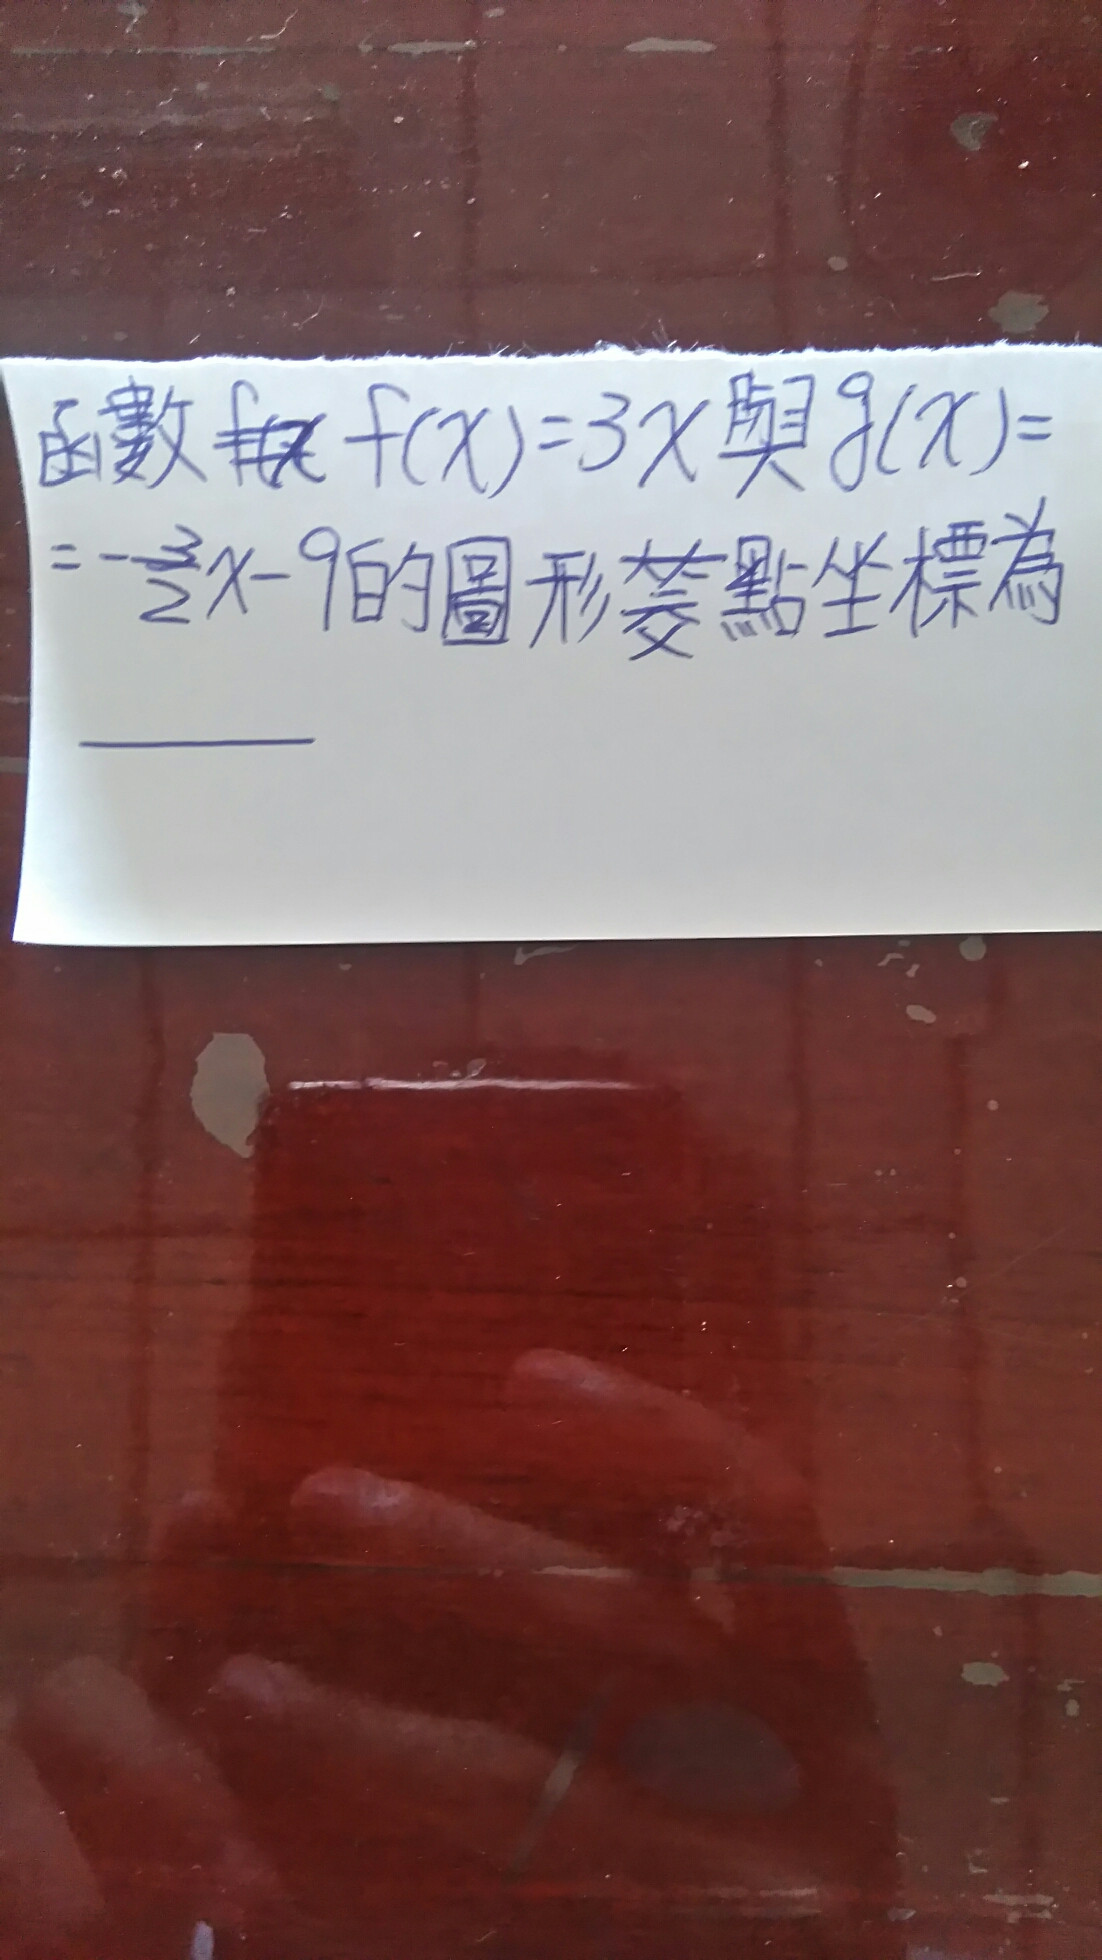 函數 f(x)=3x與g(x)=
=-3/2x-9的圖形交點坐標為